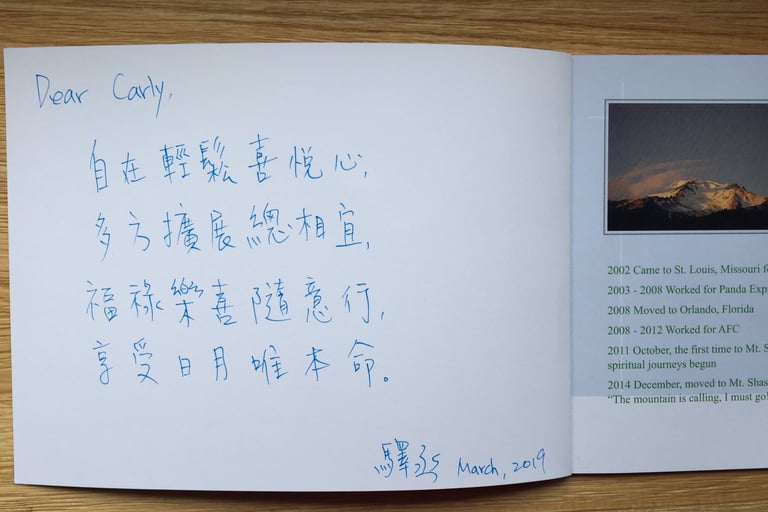 Dear Carly,
自在輕鬆喜悅心,
多方擴展總相宜,
福祿樂喜隨意行,
享受日月唯本命。
驛丞 March, 2019
2002 Came to St. Louis, Missouri
2003 - 2008 Worked for Panda
2008 Moved to Orlando, Florida
2008 - 2012 Worked for AFC
2011 October, the first time to Mt.
spiritual journeys begun
2014 December, moved to Mt.
“The mountain is calling, I must go!